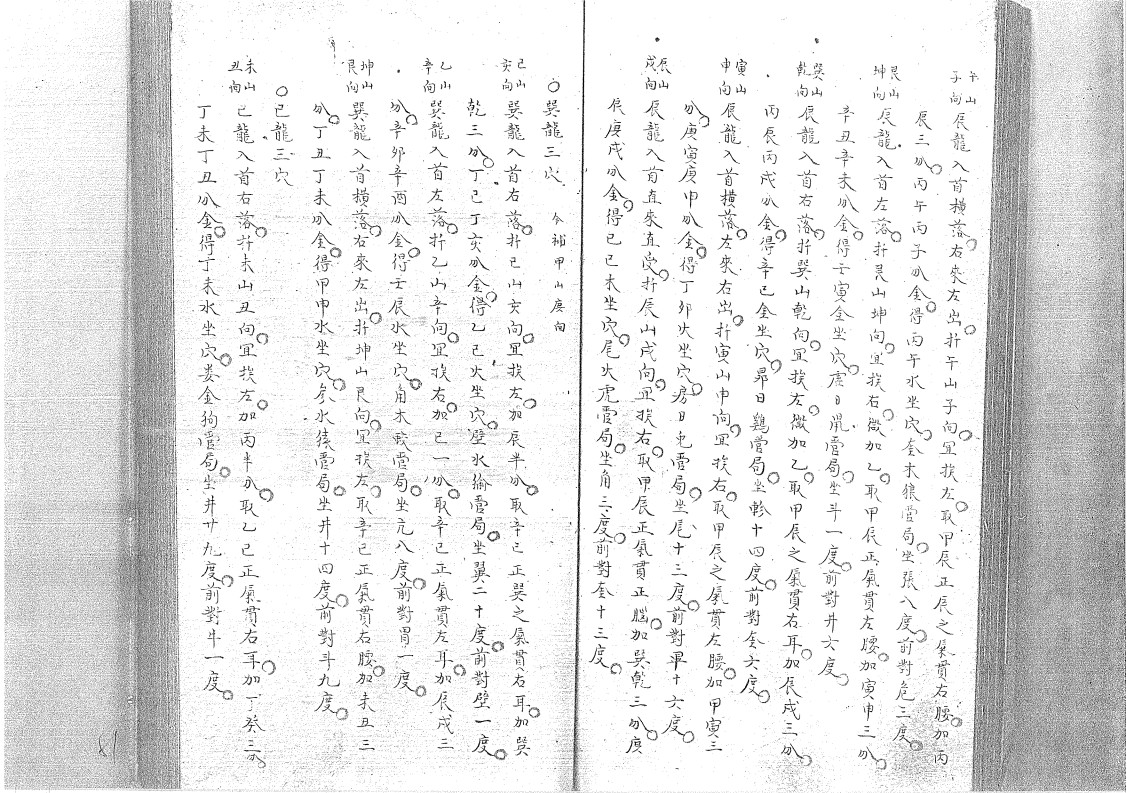 午山
子向
辰龍入首橫落右來左出扦午山子向宜挨左取甲辰正辰之氣貫右腰加丙
辰三分丙午丙子分金得丙午水坐穴奎木狼營局坐張八度前對危三度
艮山
坤向
辰龍入首左落扦艮山坤向宜挨右微加乙取甲辰正氣貫左腰加寅申三分
辛丑辛未分金得壬寅金坐穴虛日鼠營局坐斗一度前對井六度
巽山
乾向
辰龍入首右落扦巽山乾向宜挨左微加乙取甲辰之氣貫右耳加辰戌三分
丙辰丙戌分金得辛巳金坐穴昴日鷄營局坐軫十四度前對奎六度
寅山
申向
辰龍入首橫落左來右出扦寅山申向宜挨右取甲辰之氣貫左腰加甲寅三
分庚寅庚申分金得丁卯火坐穴房日兔營局坐尾十三度前對畢十六度
辰山
戌向
辰龍入首直來直受扦辰山戌向宜挨右取甲辰正氣貫正腦加巽乾三分庚
辰庚戌分金得己巳木坐穴尾火虎營局坐角三度前對奎十三度
巽龍三穴 今補甲山庚向
巳山
亥向
巽龍入首右落扦巳山亥向宜挨左加辰半分取辛巳正巽之氣貫右耳加巽
乾三分丁巳丁亥分金得乙巳火坐穴壁水㺄營局坐翼二十度前對壁一度
乙山
辛向
巽龍入首左落扦乙山辛向宜挨右加巳一分取辛巳正氣貫左耳加辰戌三
分辛卯辛酉分金得壬辰水坐穴角木蛟營局坐亢八度前對胃一度
坤山
艮向
巽龍入首橫落右來左出扦坤山艮向宜挨左取辛巳正氣貫右腰加未丑三
分丁丑丁未分金得甲申水坐穴參水猿營局坐井十四度前對斗九度
巳龍三穴
未山
丑向
巳龍入首右落扦未山丑向宜挨左加丙半分取乙巳正氣貫右耳加丁癸三分
丁未丁丑分金得丁未水坐穴婁金狗營局坐井廿九度前對斗一度